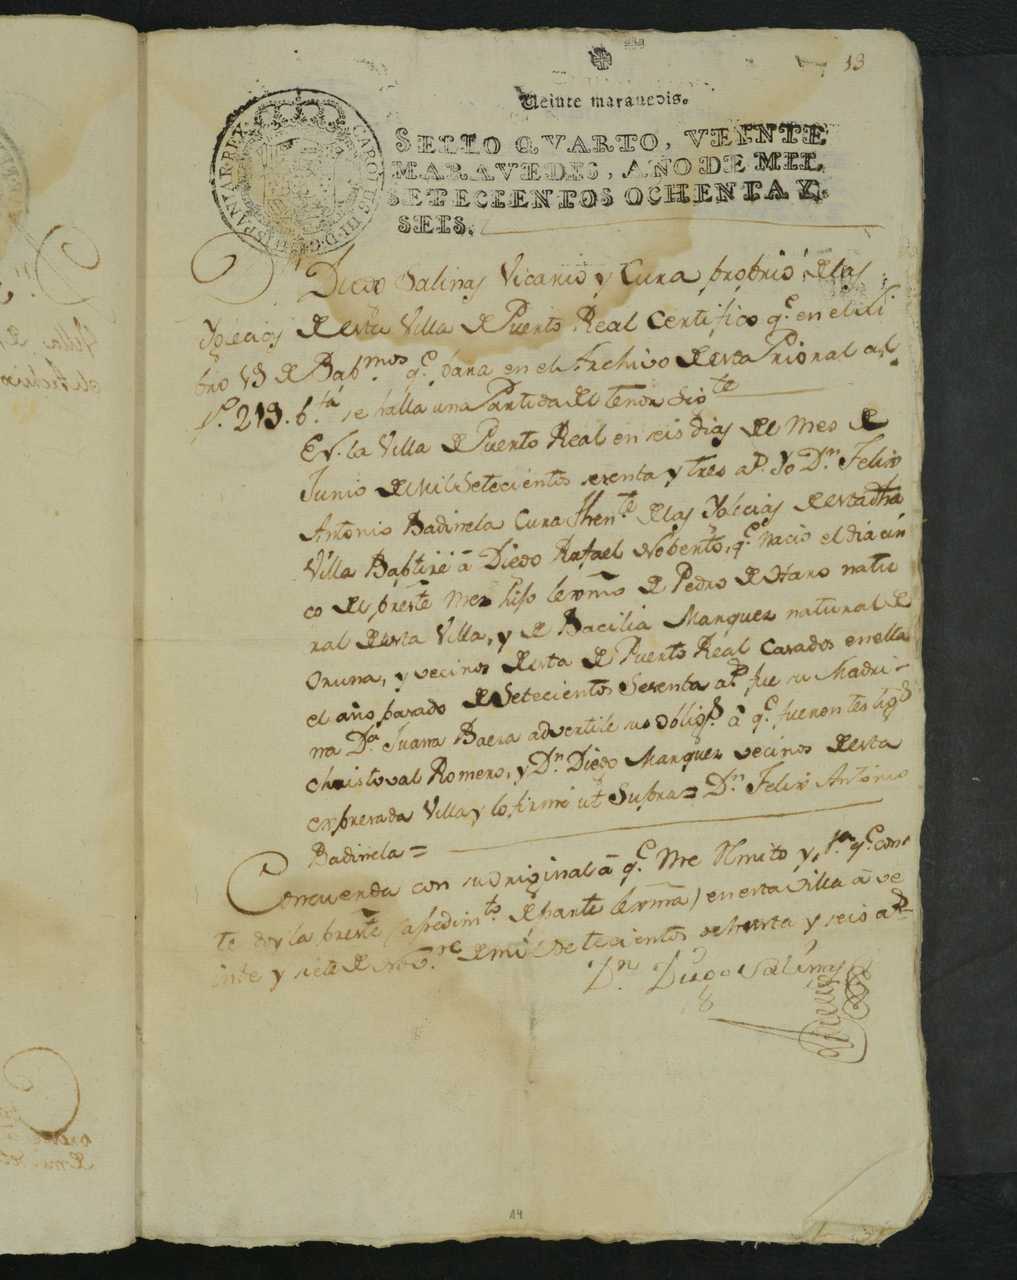 13
Veinte maravedis.
SELLO QVARTO, VEINTE
MARAVEDIS, AÑO DE MIL
SETECIENTOS OCHENTA Y
SEIS.
CAROLUS III D. G. HISPANIAR. REX
Dn Diego Salinas Vicario y Cura proprio, de las
Yglecias de esta Villa de Puerto Real Certifico q.e en el li
bro 13 de Bapmos q.e para en el Archivo de esta Prioral al
fo. 219. bta se halla una Partida del tenor sigte
En la Villa de Puerto Real en seis dias del Mes de
Junio de Mil Setecientos sesenta y tres a.s Yo Dn. Felix
Antonio Badinela Cura Thente. de las Yglecias de esta dha
Villa Baptize â Diego Rafael Noberto, q.e nacio el dia cin
co del preste Mes hijo lexmo de Pedro de Haro natu
ral de esta Villa, y de Bacilia Marquez natural de
Osuna, y vecinos de esta de Puerto Real Casados en ella
el año pasado de Setecientos Sesenta a.s fue su Madri-
na Da. Juana Baesa advertile su oblign. â q.e fueron testigs
Christoval Romero, y Dn. Diego Marquez vecinos de esta
expresada Villa y lo firmé ut Supra = Dn. Felix Antonio
Badinela =
Concuerda con su Original â q.e me Remito y, pa. q.e cons
te doy la preste (a pedimto. de parte lexma) en esta Villa â ve
inte y siete de Novre de mil Setecientos ochenta y seis a.s
Dn. Diego Salinas
14